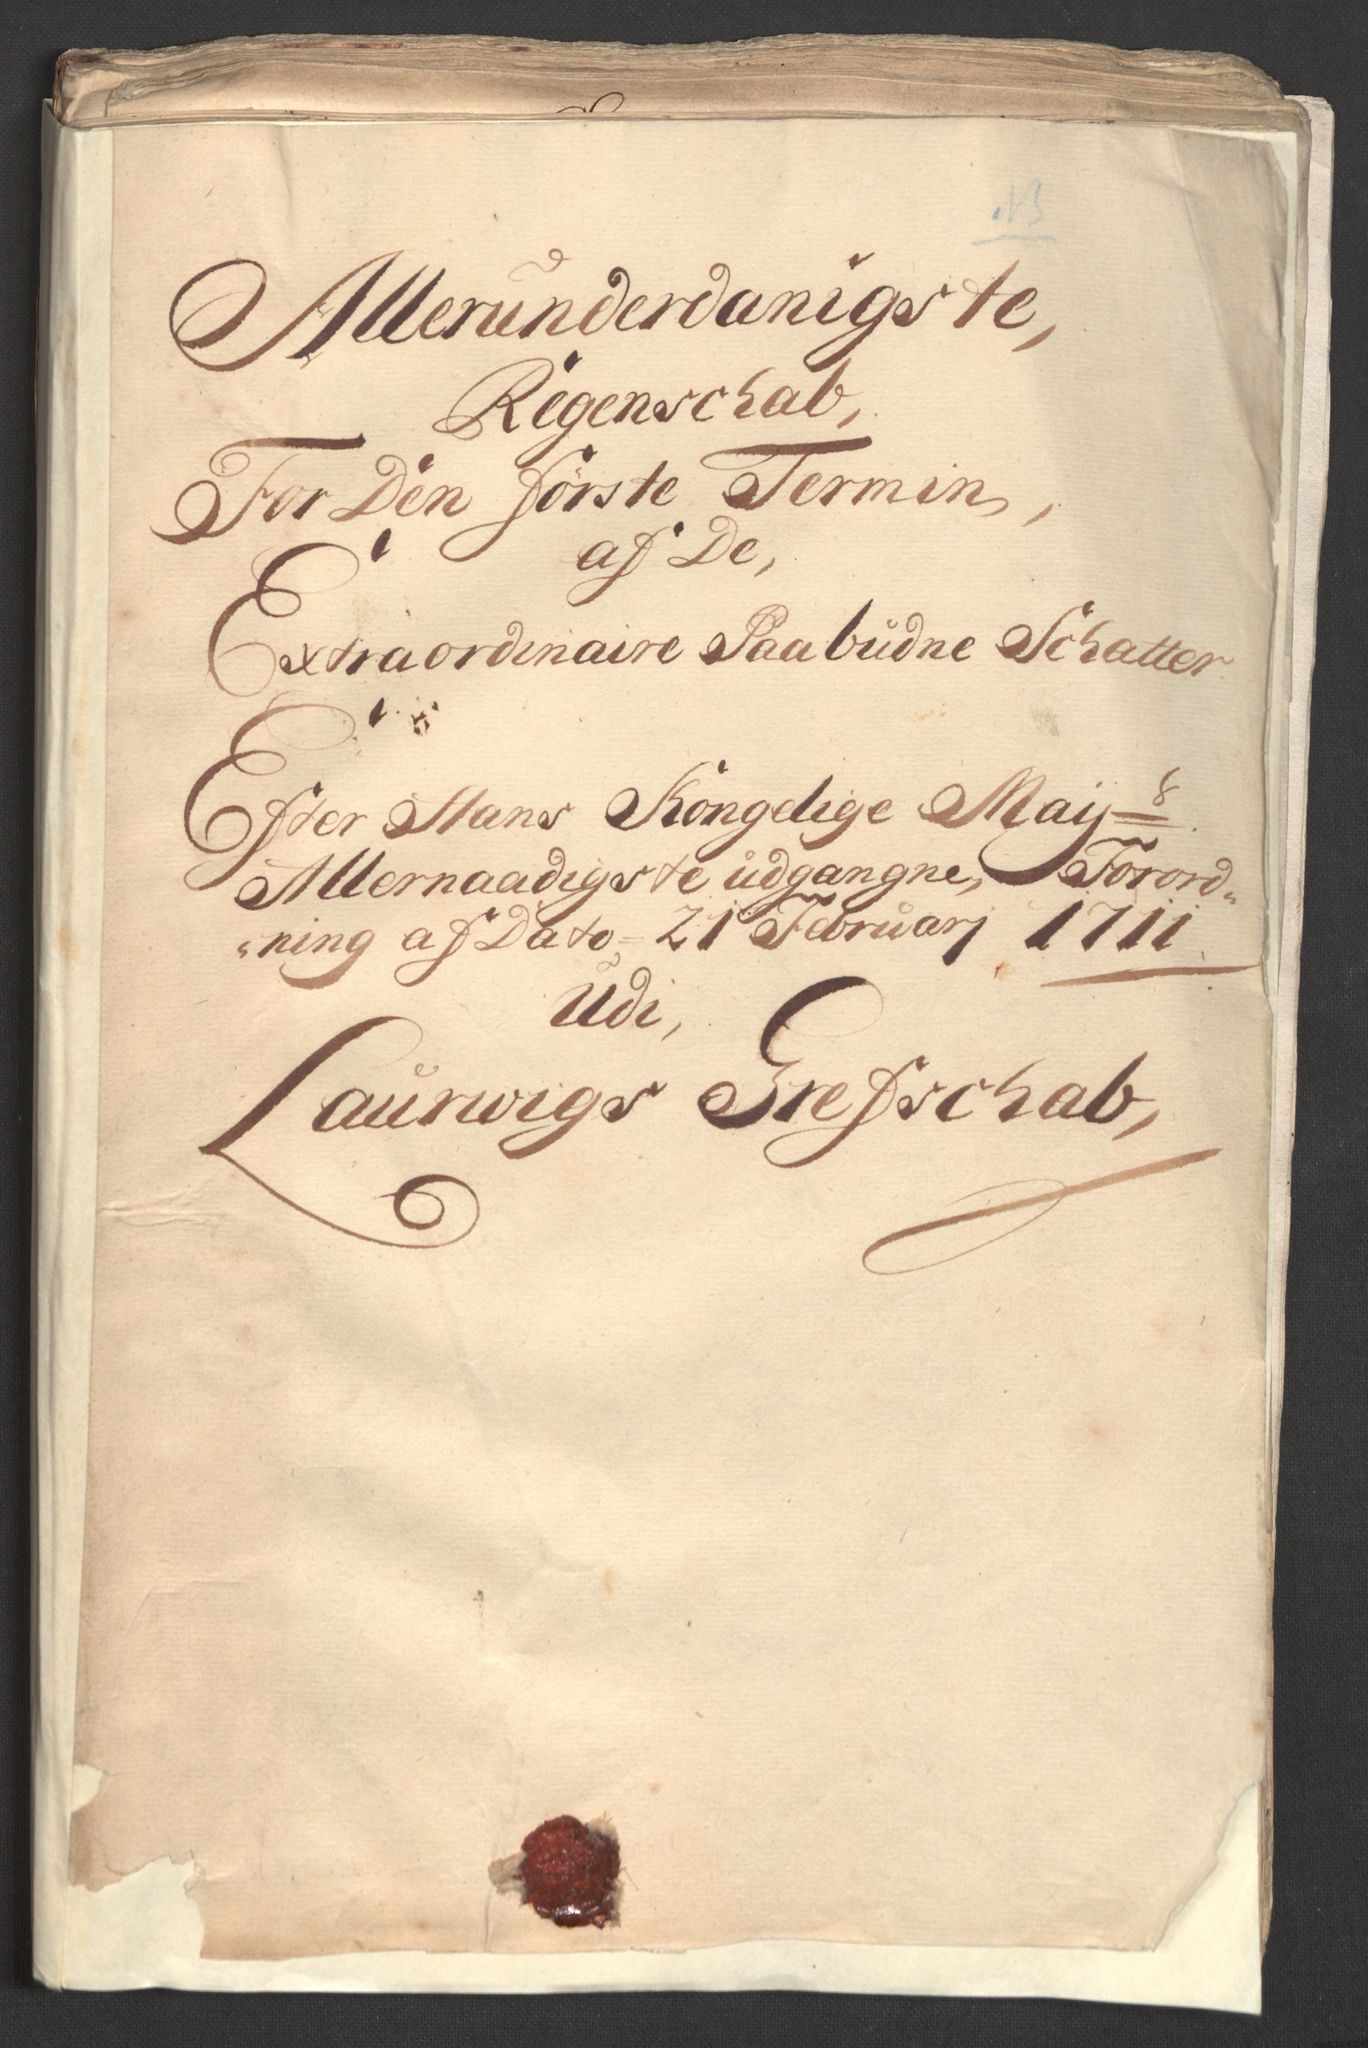 Allerunderdanigste,
Regenschab,
For Den förste Termin,
af De,
Extraordinaire Paabudne Schatter
Efter Hans Kongelige May
Allernaadigste udgangne, Forord-
-ning af Dato 21 Februarj 1711
Udi,
Laurwigs Grefschab,